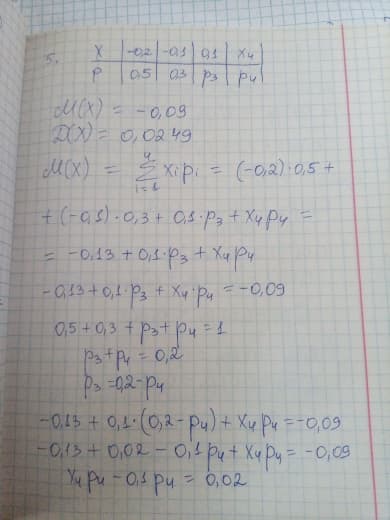 5. X | -0,2 | -0,1 | 0,1 | x₄
P | 0,5 | 0,3 | p₃ | p₄
M(X) = -0,09
D(X) = 0,0249
M(X) = ∑ᵢ₌₁⁴ xᵢpᵢ = (-0,2)·0,5 +
+ (-0,1)·0,3 + 0,1·p₃ + x₄p₄ =
= -0,13 + 0,1·p₃ + x₄p₄
-0,13 + 0,1·p₃ + x₄·p₄ = -0,09
0,5 + 0,3 + p₃ + p₄ = 1
p₃ + p₄ = 0,2
p₃ = 0,2 - p₄
-0,13 + 0,1·(0,2 - p₄) + x₄p₄ = -0,09
-0,13 + 0,02 - 0,1p₄ + x₄p₄ = -0,09
x₄p₄ - 0,1p₄ = 0,02